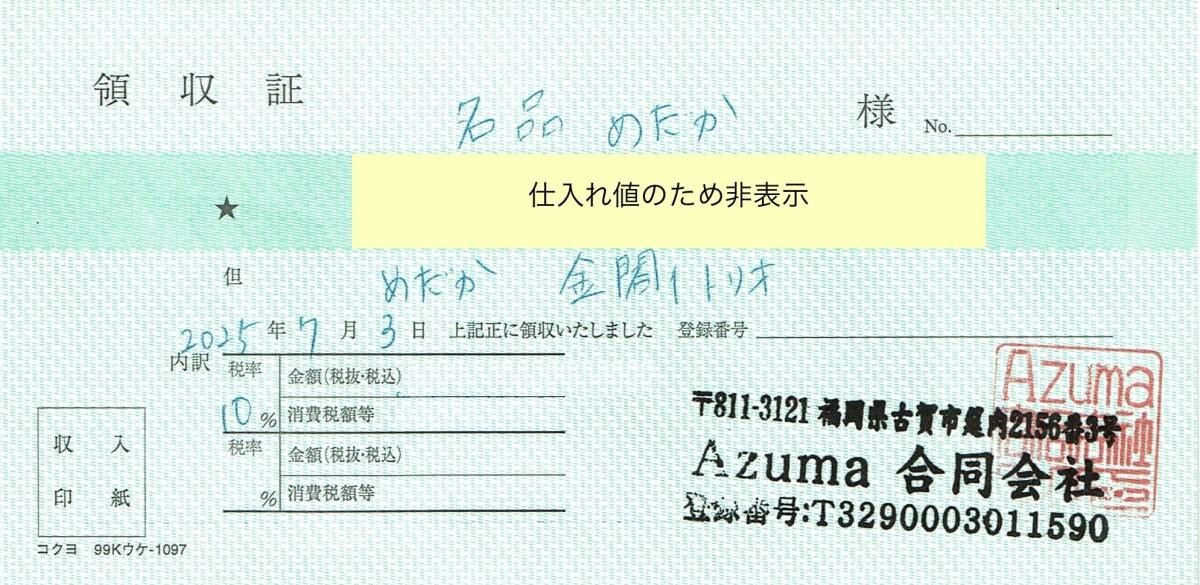 領収証
名品 めだか 様 No.
★ 仕入れ値のため非表示
但 めだか 金閣1トリオ
2025年7月3日 上記正に領収いたしました 登録番号
内訳
税率 金額(税抜・税込)
10% 消費税額等
税率 金額(税抜・税込)
% 消費税額等
収入
印紙
コクヨ 99Kウケ-1097
Azuma
〒811-3121 福岡県古賀市筵内2156番3号
Azuma 合同会社
登録番号:T3290003011590